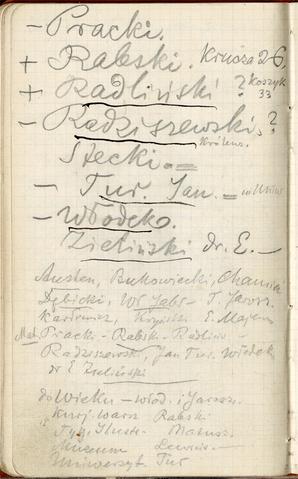 — Pracki.
+ Rabski. Krucza 26.
+ Radliński ? Koszyk 33
— Radziszewski. ?
Królew.
Stecki. =
— Tur. Jan. —
— Włodek.
Zieliński dr. E. —
Austen, Bukowiecki,
Dębicki, Wł. Jabł - T. Jarosz.
E. Majew
Mat. Pracki - Rabski - Radliń
Radziszewski, Jan Tur. Włodek
dr E Zieliński
do Wieku — włod. i Jarosz.
Kurj. Warsz Rabski
Tyg. Ilustr. - Matusz.
Muzeum
Uniwersyt. Tur